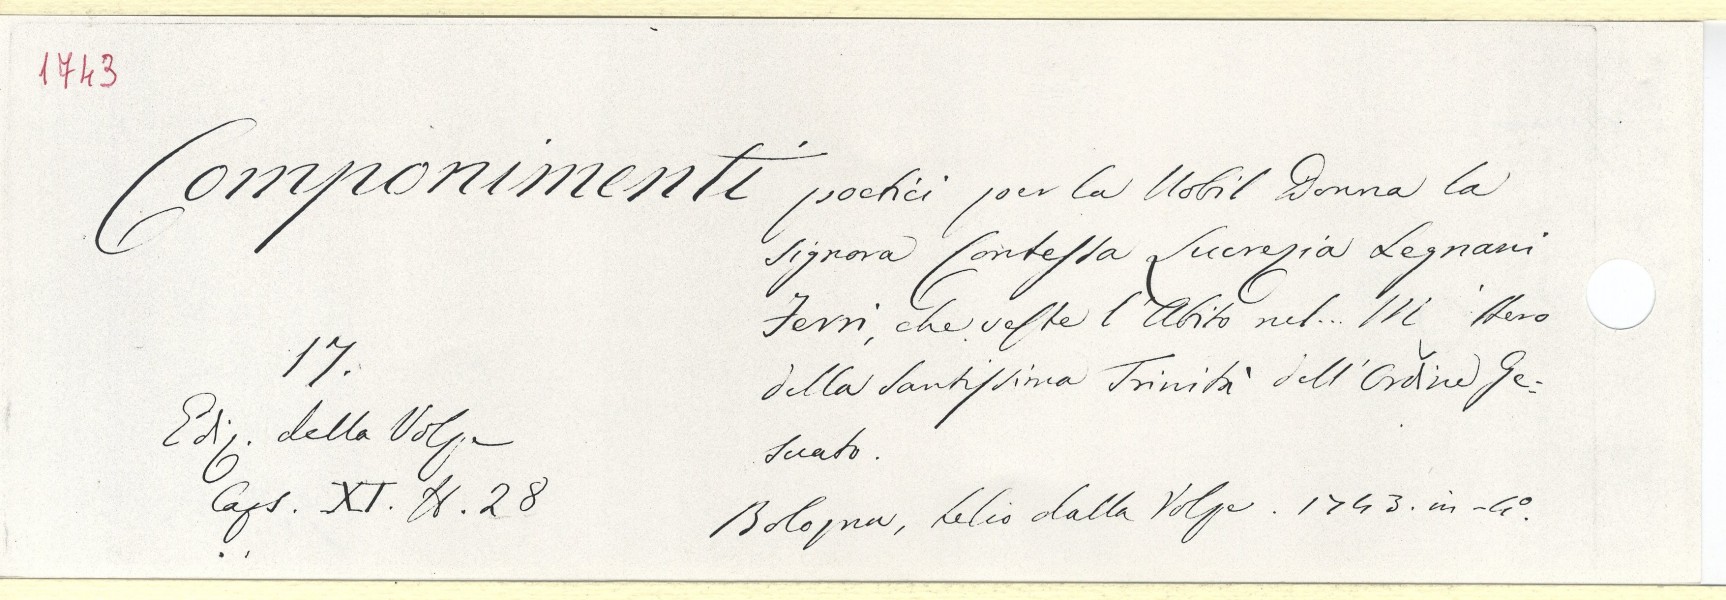 1743
Componimenti poetici per la Nobil Donna la
signora Contessa Lucrezia Legnani
Ferri, che veste l'Abito nel... M stero
della Santissima Trinità dell'Ordine Ge-
suato.
17.
Ediz. della Volpe
Caps. XI. N. 28
Bologna, Lelio dalla Volpe. 1743. in-4°.